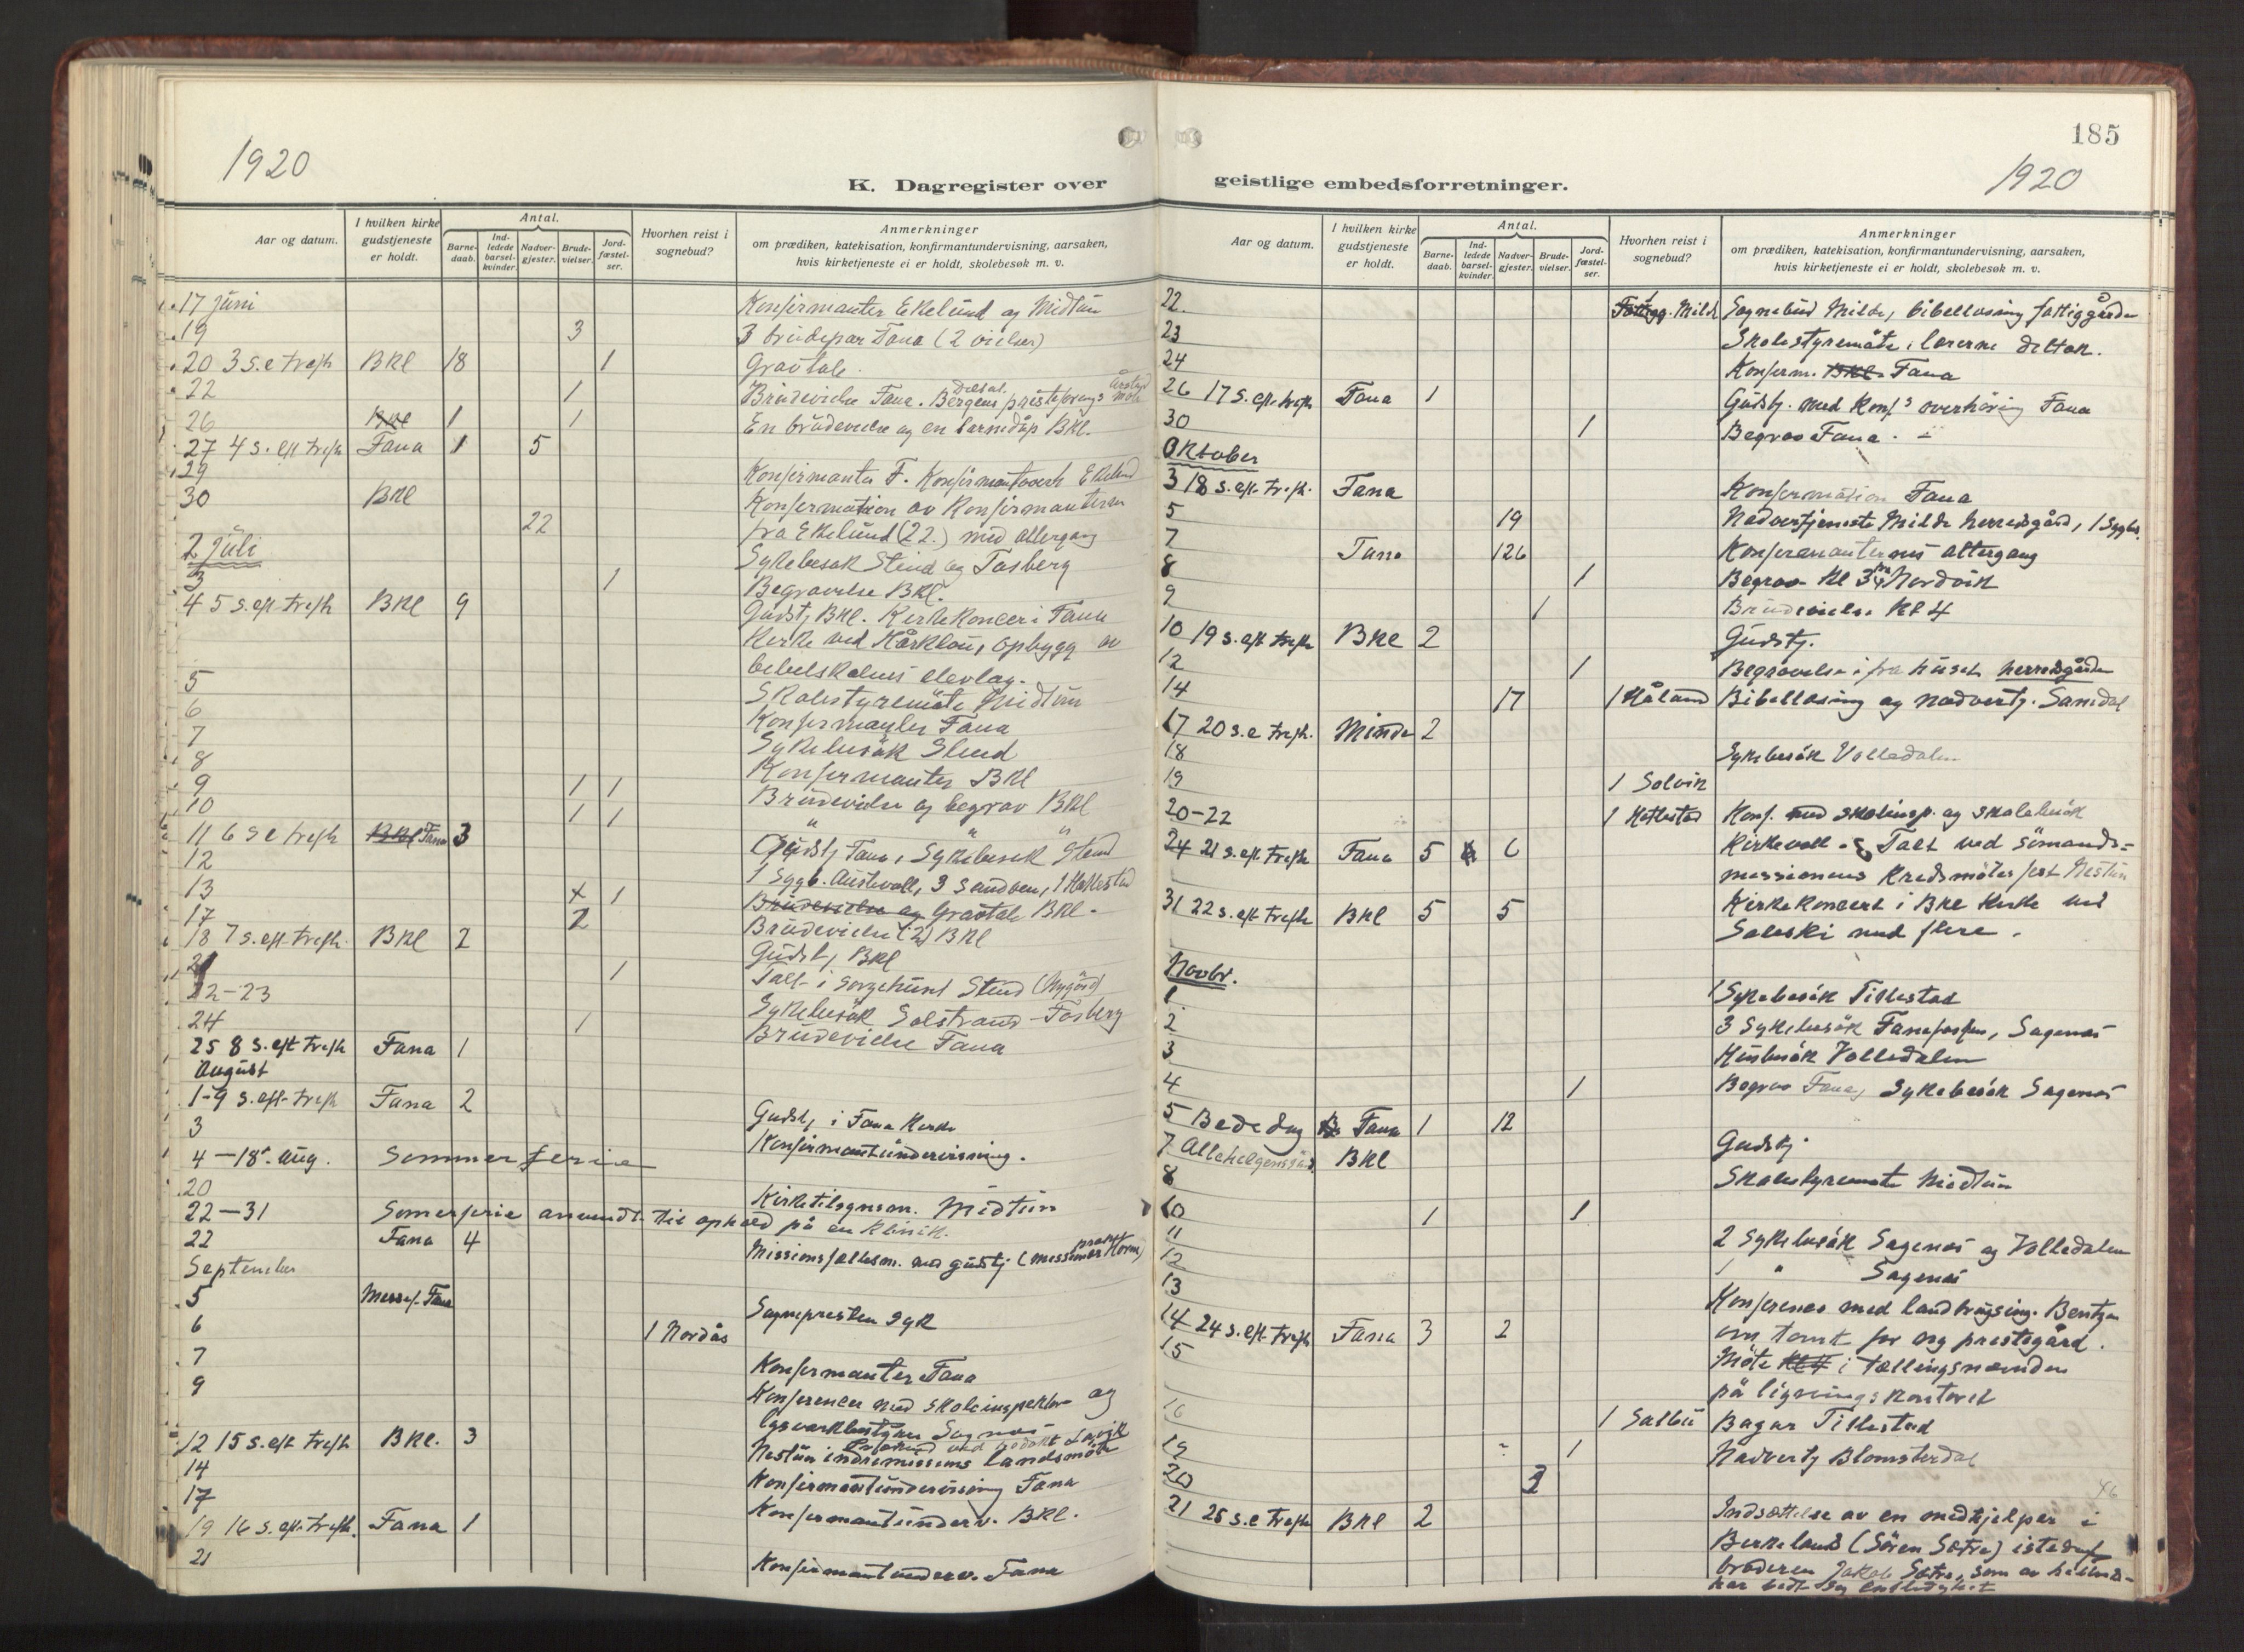 1920
K. Dagregister over
Aar og datum.
I hvilken kirke gudstjeneste er holdt.
Antal.
Barne-daab.
Ind-ledede barsel-kvinder.
Nadver-gjester.
Brude-vielser.
Jord-fæstel-ser.
Hvorhen reist i sognebud?
Anmerkninger
om prædiken, katekisation, konfirmantundervisning, aarsaken,
hvis kirketjeneste ei er holdt, skolebesøk m. v.
17 juni Konfirmanter Ekelund og Midtun
19 3 3 brudepar Fana (2 vielser)
20 3 s.e trefh BKl 18 1 Gravtale.
22 1 Brudevielse Fana. Bergens
26 BKl 1 1 En brudevielse og en barnedåp BKl.
27 4 s. eft trefh Fana 1 5
29 Konfirmanter F.
30 BKl Konfirmation av Konfirmanterne
22 fra Ekelund (22.) med altergang
2 Juli Sykebesøk Stend og Fosberg
3 1 Begravelse BKl.
4 5 s. eft trefh BKl 9 Gudstj BKl. Kirkekoncer i Fana
Kirke ved Hårklau,
bibelskolens elevlag.
5 Skolestyremöte Midtun
6 Konfirmanter Fana
7 Sykebesök Stend
8 Konfirmanter BKl
9 1 1 Brudevielse og begrav BKl
10 1 1 " " "
11 6 s e trefh BKl Fana 3 Gudstj Fana, Sykebesøk Stend
12 1 Sygb. Austevoll, 3 Sandven, 1 Hatlestad
13 x 1 Brudevielse og Gravtale BKl.
17 2 Brudevielse (2) BKl
18 7 s. eft trefh. BKl 2 Gudstj BKl
21 1 Tale i sørgehuset Stend (Nygård)
22-23 Sykebesök Solstrand - Fosberg
24 1 Brudevielse Fana
25 8 s. eft trefh Fana 1
August
1 - 9 s. eft trefh Fana 2 Gudstj i Fana Kirke
3 Konfirmantundervisning.
4 - 18. Aug. Sommerferie
20 Kirketilsynsm. Midtun
22 - 31 Somerferie anvendt til ophold på en klinik.
22 Fana 4 Missionsfællesm. med gudstj
September
5 Messef. Fana Sognepresten syk
6 1 Nordås
7 Konfirmanter Fana
9 Konferencer med skoleinspektör og
12 15 s. eft trefh BKl. 3 Nestun indremissions landsmöte
14 Konfirmantundervisning Fana
17 Konfirmantunderv. BKl.
19 16 s. eft. trefh. Fana 1
21 Konfirmantunderv. Fana
185
1920
geistlige embedsforretninger.
Aar og datum.
I hvilken kirke gudstjeneste er holdt.
Antal.
Barne-daab.
Ind-ledede barsel-kvinder.
Nadver-gjester.
Brude-vielser.
Jord-fæstel-ser.
Hvorhen reist i sognebud?
Anmerkninger
om prædiken, katekisation, konfirmantundervisning, aarsaken,
hvis kirketjeneste ei er holdt, skolebesøk m. v.
22. Milde Sognebud Milde, bibellæsning fattiggården
23 Skolestyremöte, lærerne deltok.
24 Konferm. BKl. Fana
26 17 s. eft. trefh Fana 1 Gudstj. med Konf's overhöring Fana
30 1 Begrav Fana.
Oktober
3 18 s. eft. trefh. Fana Konfirmation Fana
5 19 Nadvertjeneste Milde herredsgård,
7 Fana 126 Konfirmanternes altergang
8 1 Begrav Kl 3 Nordvik
9 1 Brudevielse Kl 4
10 19 s. eft trefh BKl 2 Gudstj.
12 1 Begravelse i fra huset herredsgården
14 17 1 Håland Bibellæsning og nadvertj. Sandal
17 20 s. e trefh. Minde 2
18 Sykebesök Volledalen
19 1 Solvik
20-22 1 Hatlestad Konf. med skoleinsp. og skolebesök
24 21 s. eft trefh Fana 5 6 Kirkevoll. Talt ved sömands-
missionens Kredsmötes fest Nestun
31 22 s. eft trefh BKl 5 5 Kirkekoncert i BKl Kirke ved
Soleski med flere.
Novbr.
1 1 Sykebesök Titlestad
2 3 Sykebesök Fanefossen, Sagenes
3 Husbesök Volledalen
4 1 Begrav Fana, Sykebesök Sagenes
5 Bededag Fana 1 12 Gudstj.
7 Allehelgensdag BKl
8 Skolestyremöte Midtun
10 1 1
11 2 Sykebesök Sagenes og Volledalen
12 1 " Sagenes
13 Konferens med landbrugsing. Bentzen
14 24 s. eft. trefh Fana 3 2 om tomt for ny prestegård.
15 Möte i tællingsnævnden
på ligningskontoret
16 1 Salbu Titlestad
19 1 Nadvertj Blomsterdal
20 2
21 25 s. e trefh BKl 2 Indsættelse av en medhjelper i
Birkeland (Sören Sætre) istedenf
broderen Jakob Sætre, som av
har bedt sig entlediget
46